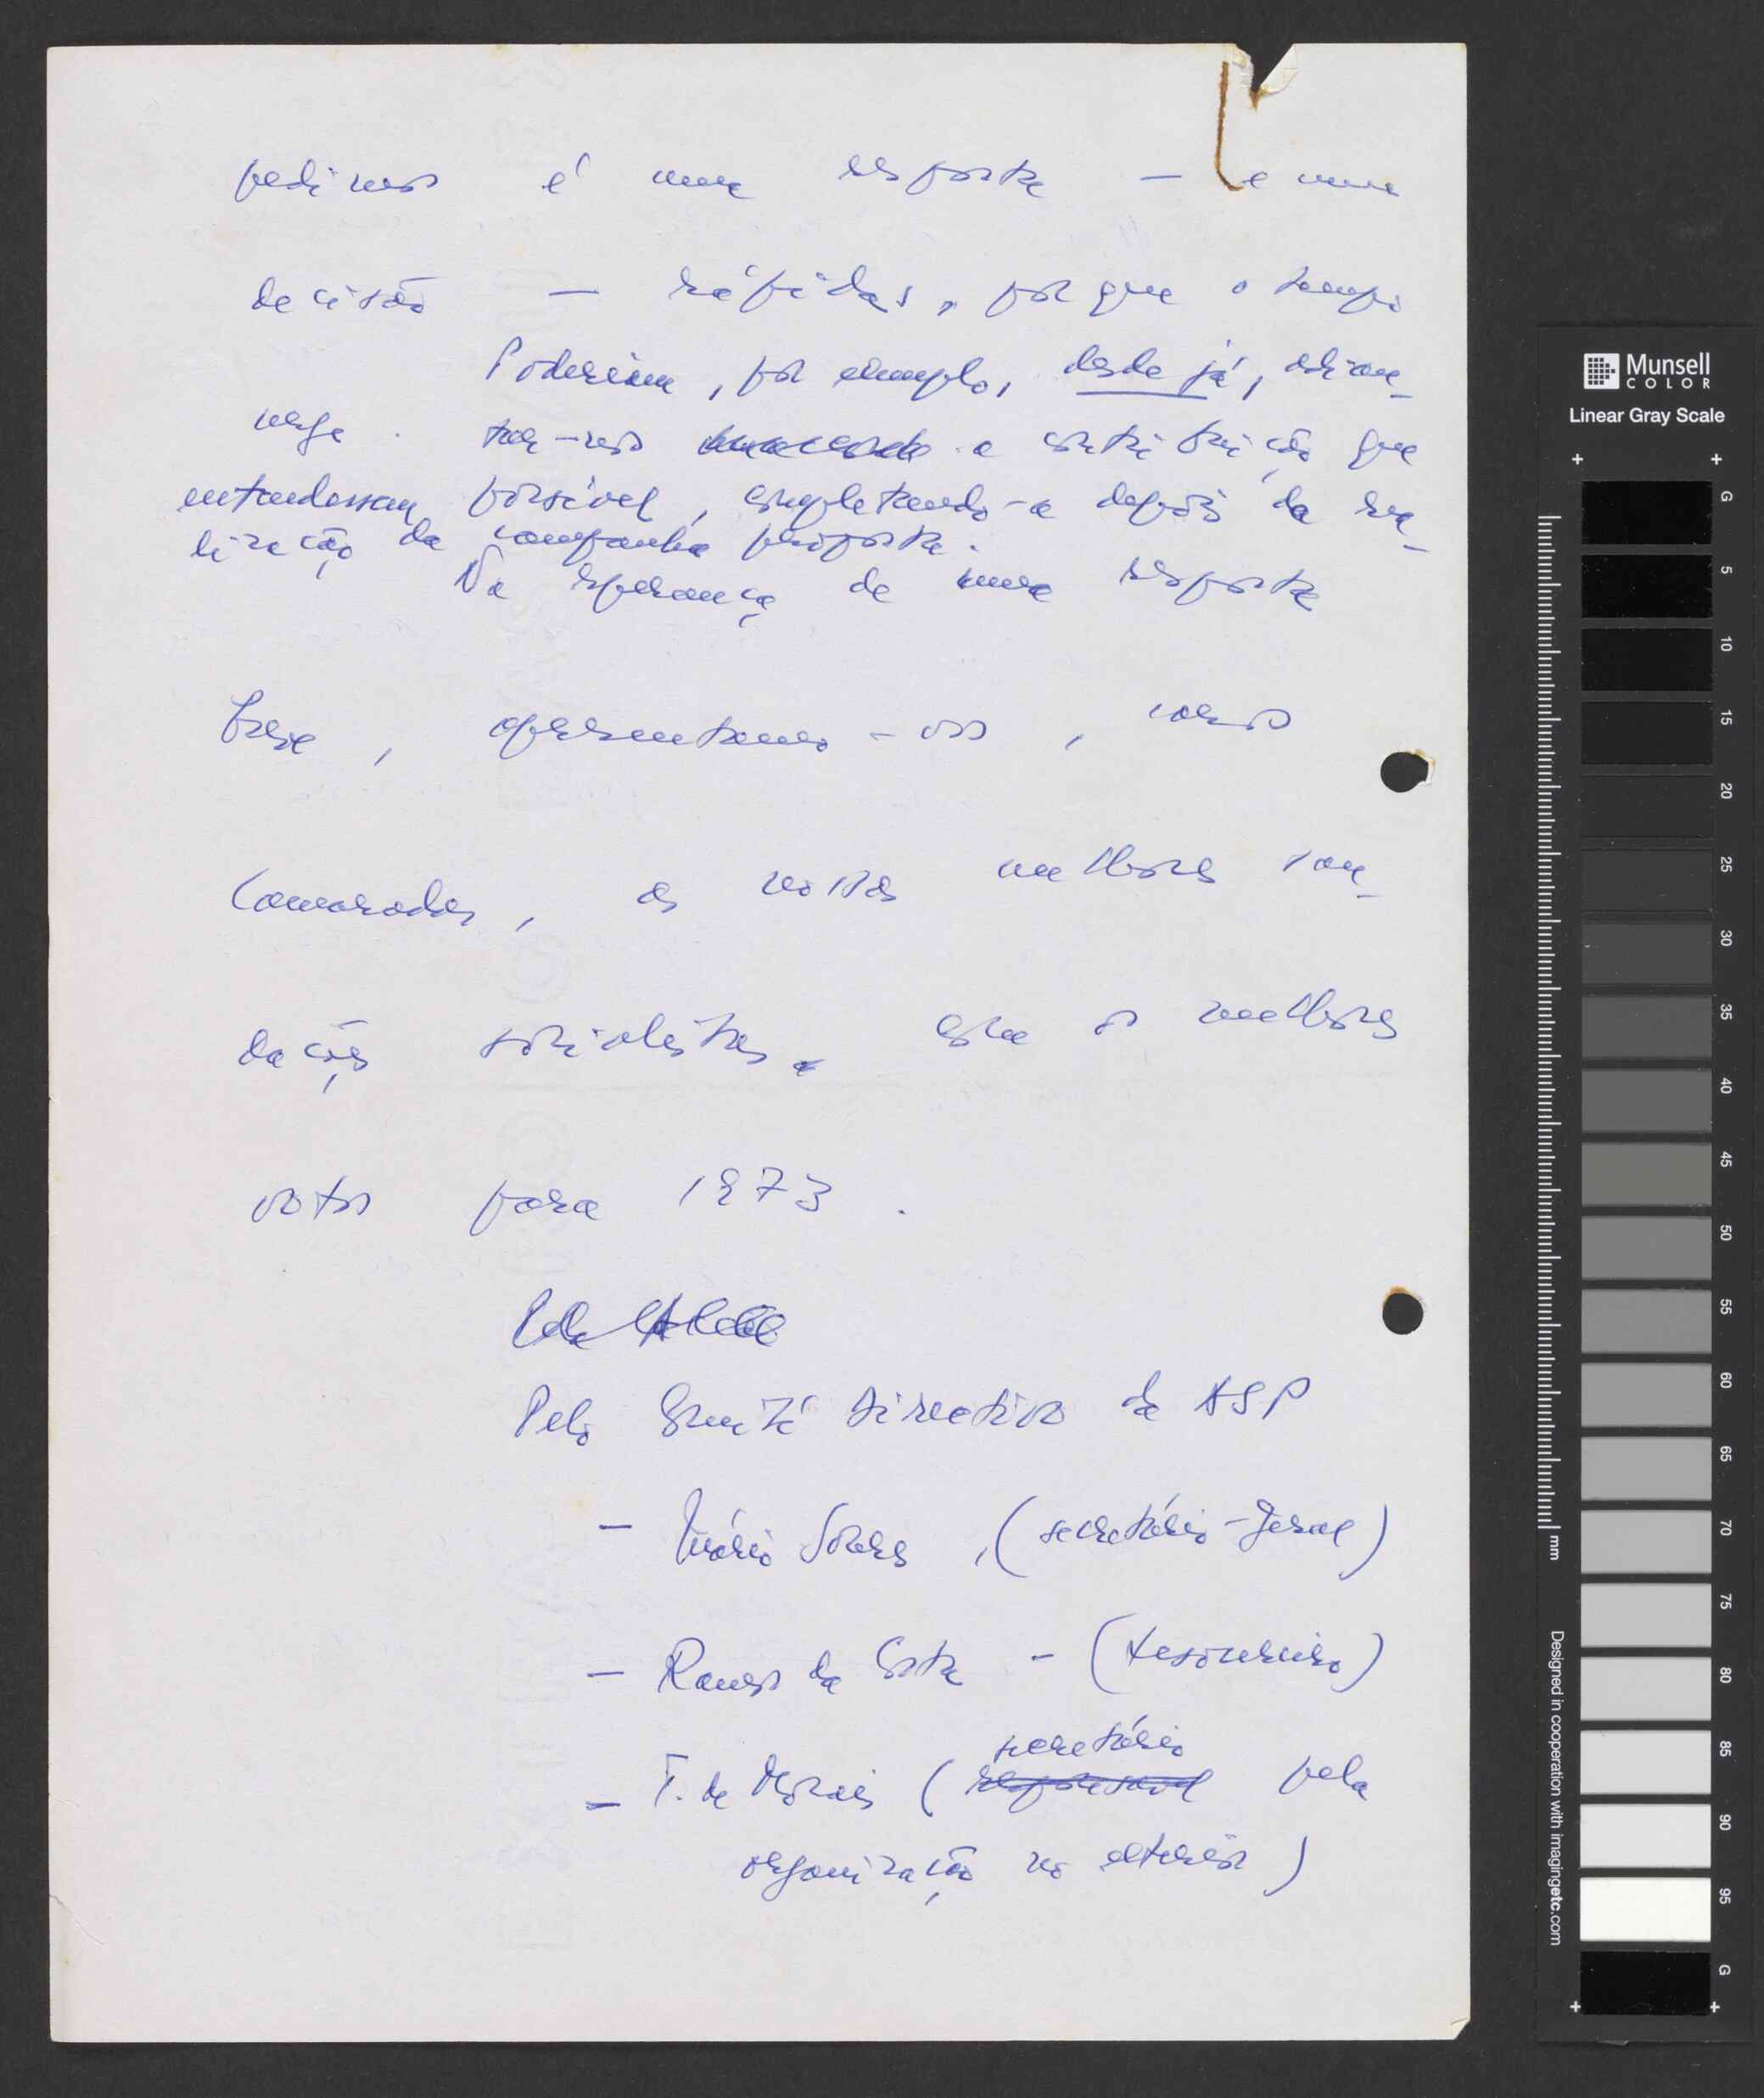 pedimos é uma resposta — e uma
decisão — rápidas, porque o tempo
urge. Poderiam, por exemplo, desde já, adian-
tar-nos a contribuição que
entendessem possível, completando-a depois da rea-
lização da campanha proposta.
Na esperança de uma resposta
breve, apresentamo-vos, caros
Camaradas, as nossas melhores sau-
dações socialistas, com os melhores
votos para 1973.
Pelo Comité Directivo da ASP
— Mário Soares, (secretário-geral)
— Ramos da Costa — (tesoureiro)
secretário
— T. de Morais (responsável pela
organização no exterior)
Munsell
COLOR
Linear Gray Scale
G
5
10
15
20
25
30
35
40
45
50
55
60
65
70
75
80
85
90
95
G
mm
Designed in cooperation with imagingetc.com